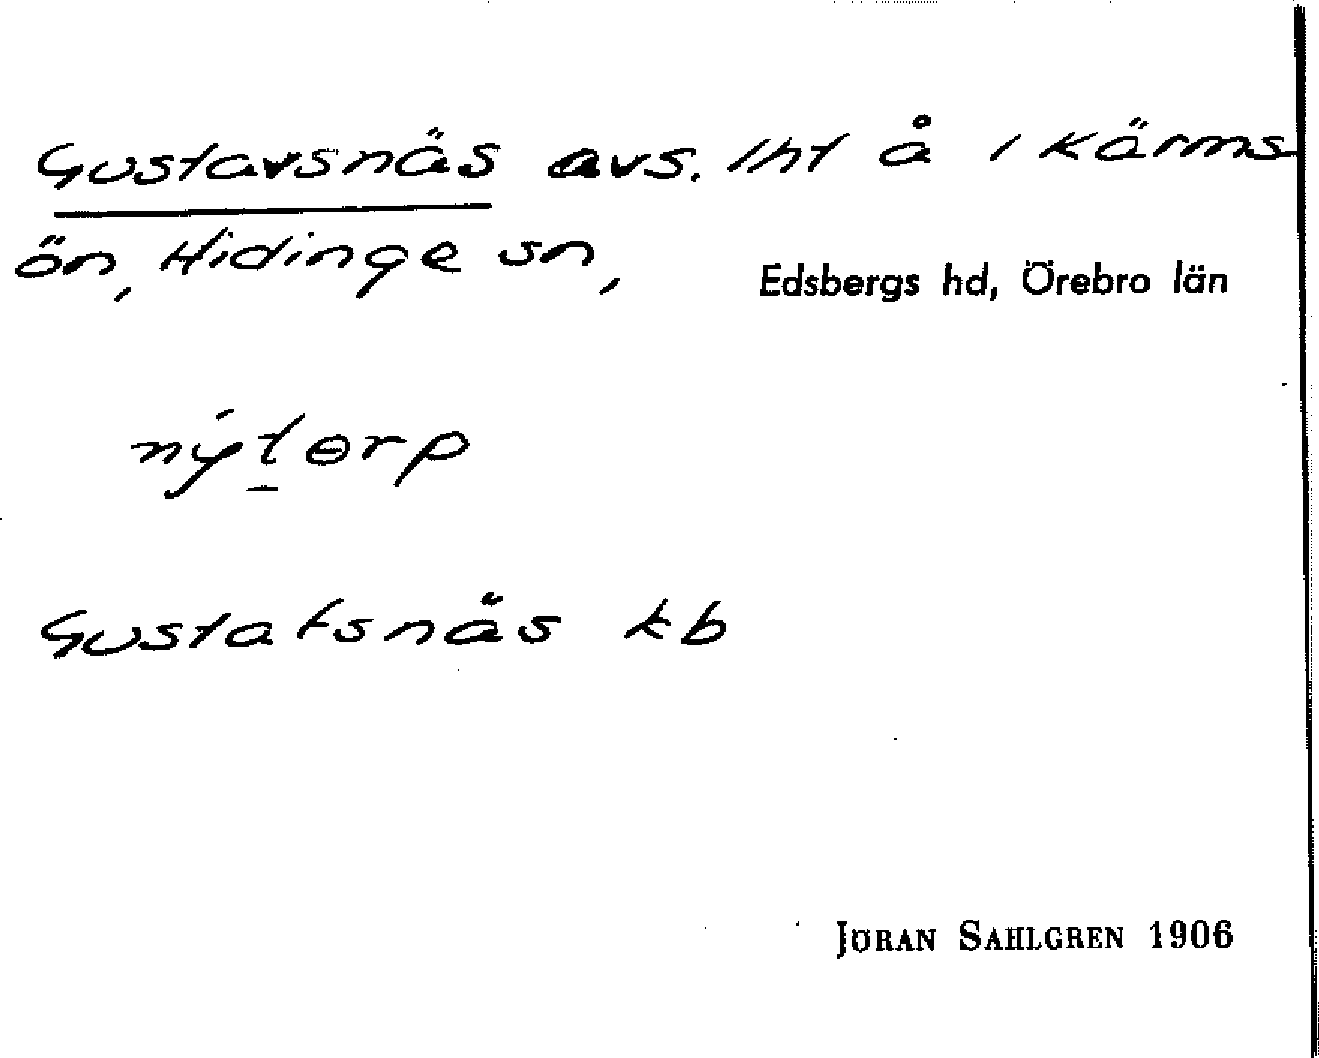 Gustavsnäs avs. lht å 1 Kärms
ön, Hidinge sn, Edsbergs hd, Örebro län
nýtorp
Gustafsnäs kb
JÖRAN SAHLGREN 1906